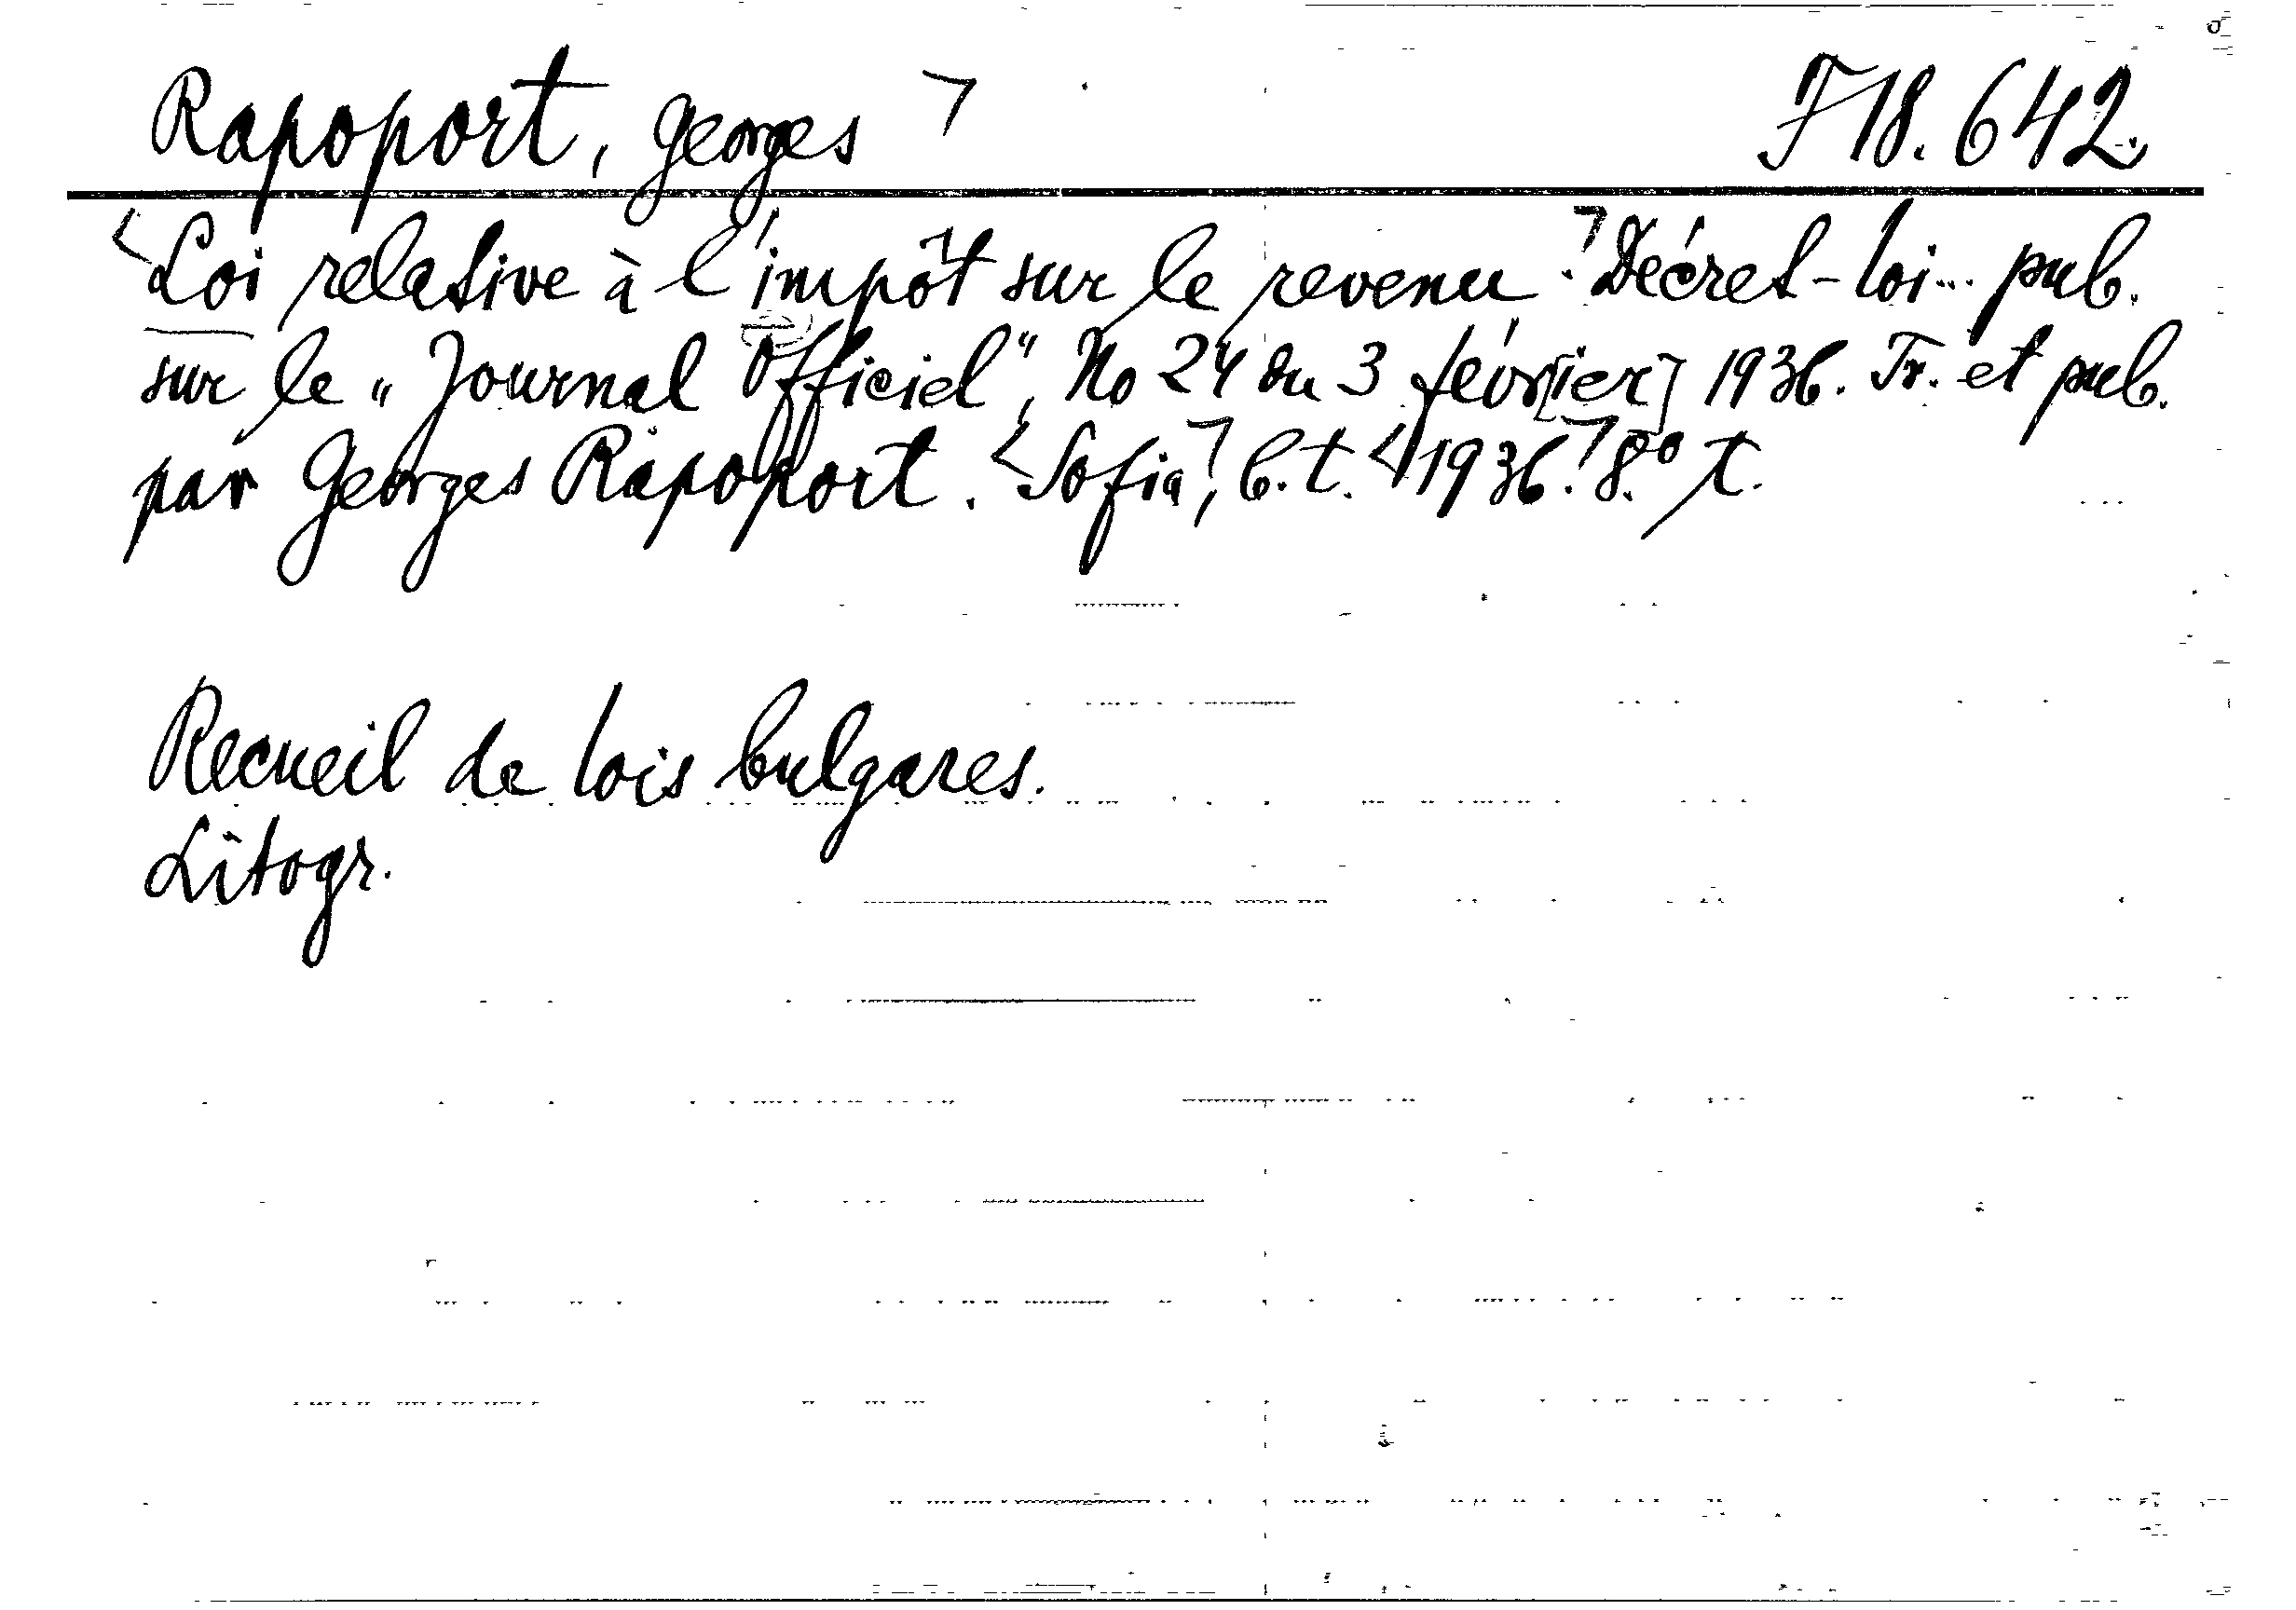 Rapoport, Georges ㄱ F 18. 642.
<Loi relative à l'impôt sur le revenu.ㄱ Décret-loi... pub.
sur le „Journal Officiel“, No 24 du 3 févr[ier] 1936. Tr. et pub.
par Georges Rapoport. <Sofiaㄱ, b. t. <1936.ㄱ 8.º T.
Recueil de lois bulgares.
Litogr.